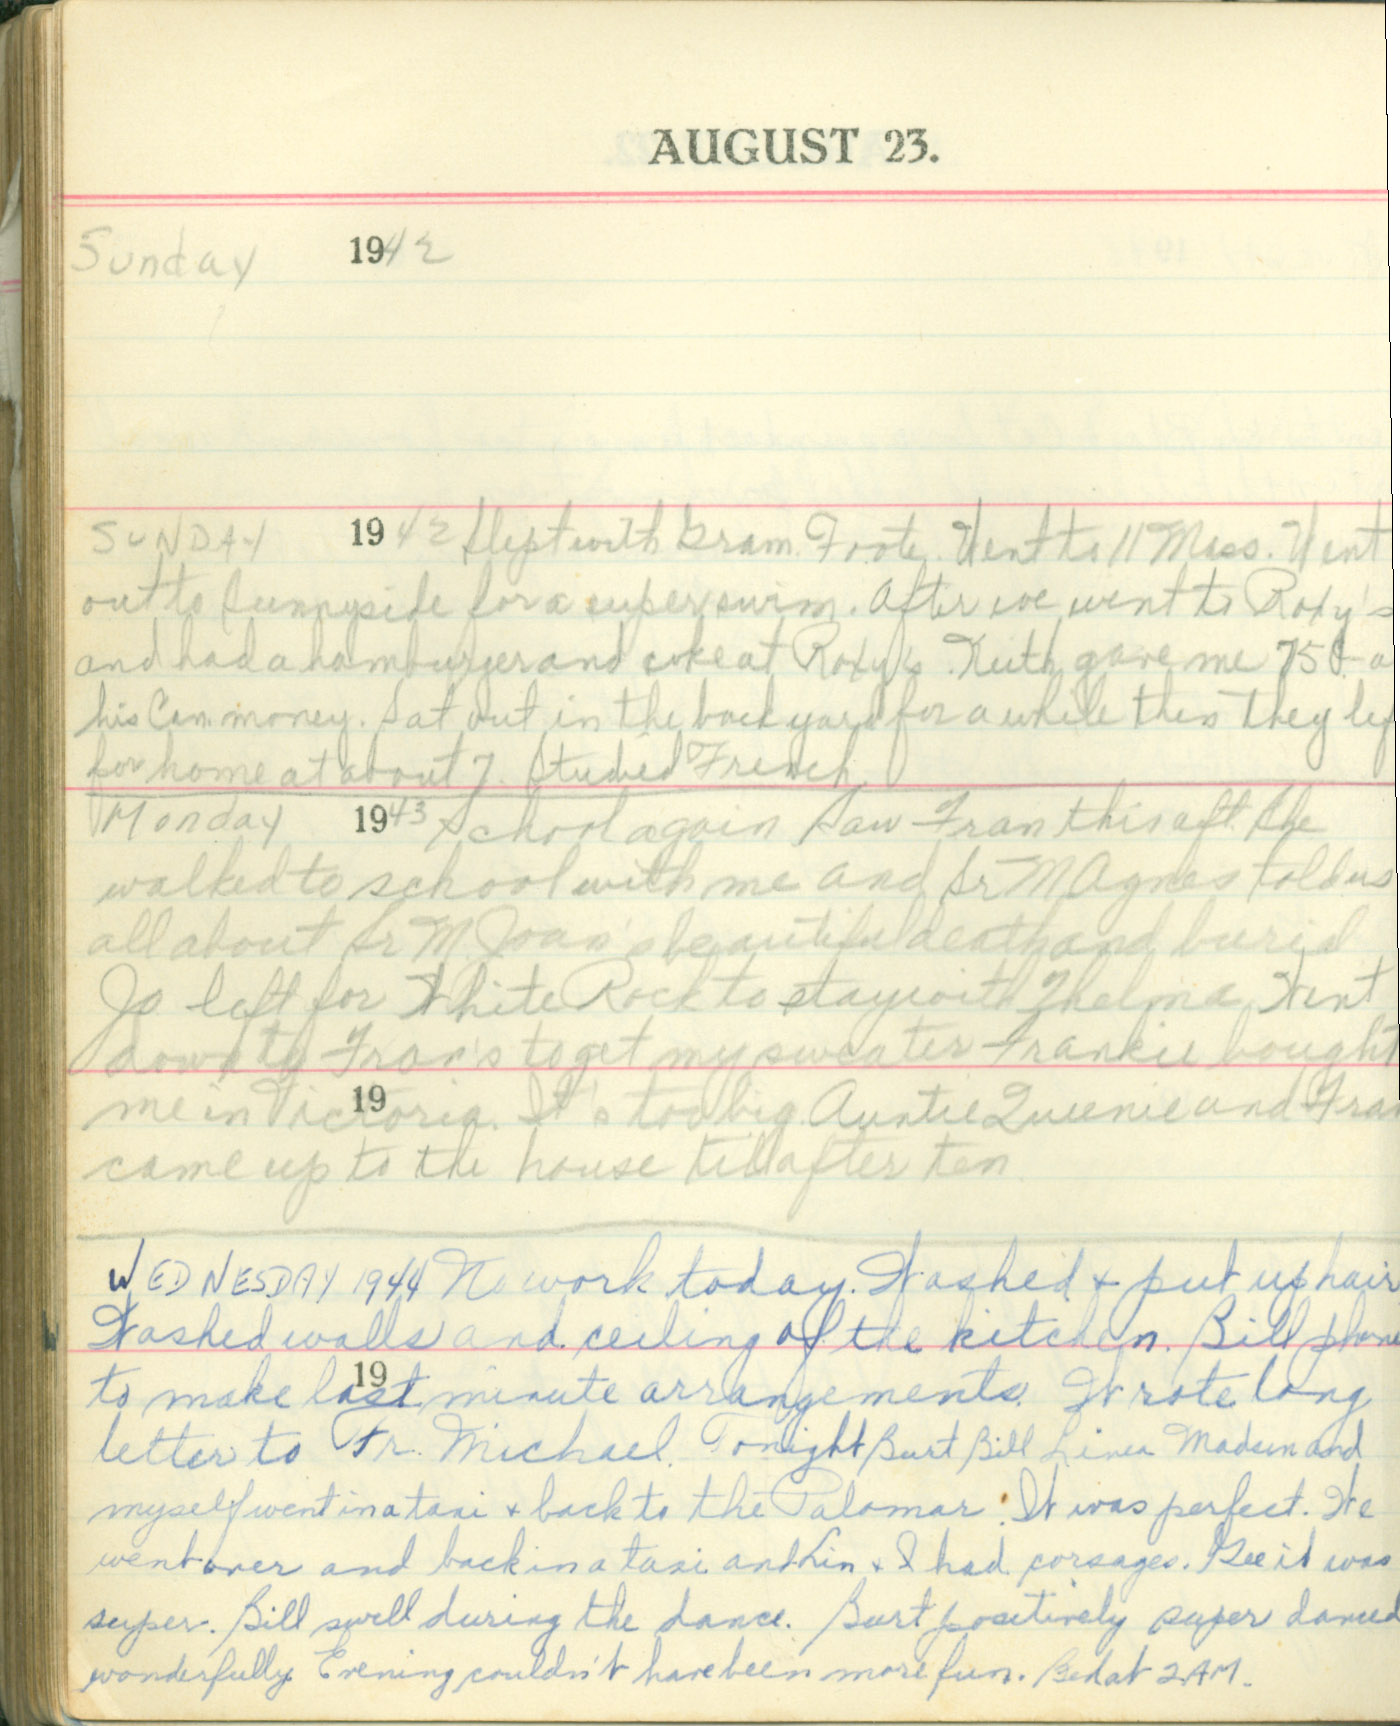 AUGUST 23.
Sunday 1942
SUNDAY 1942 Slept with Gram Foote. Went to 11 Mass. Went
out to Sunnyside for a super swim. After we went to Roxy's
and had a hamburger and coke at Roxy's. Keith gave me 75¢
his Can. money. Sat out in the back yard for a while then they
for home at about 7. Studied French
Monday 1943 School again Saw Fran this aft. She
walked to school with me and Sr M Agnes told us
all about Sr M. Joan's beautiful death and burial
Jo left for White Rock to stay with Thelma. Went
down to Fran's to get my sweater Frankie bought
19
me in Victoria. It's too big. Auntie Queenie and Fran
came up to the house till after ten
WEDNESDAY 1944 No work today. Washed + put up hair
Washed walls and ceiling of the kitchen. Bill phone
19
to make last minute arrangements. Wrote long
letter to Fr. Michael. Tonight Burt Bill Linea Madsen and
myself went in a taxi + back to the Palomar. It was perfect. We
went over and back in a taxi and Lin + I had corsages. Gee it was
super. Bill swell during the dance. Burt positively super danced
wonderfully. Evening couldn't have been more fun. Bed at 2 AM.